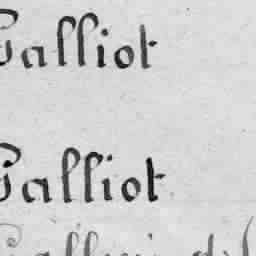 Galliot
Galliot